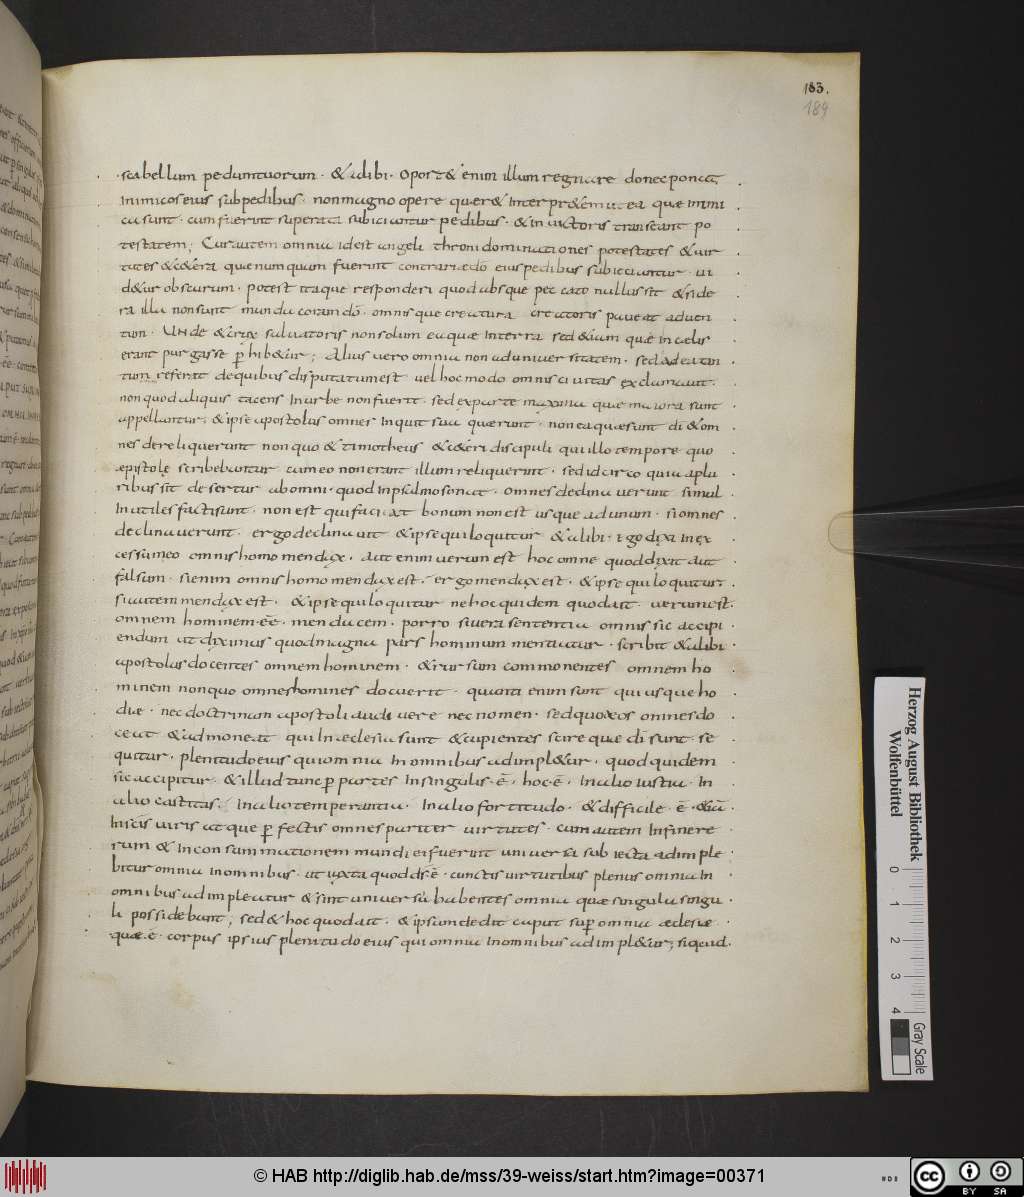 183.
189
scabellum pedum tuorum · & alibi · oport& enim illum regnare donec ponat
inimicos eius sub pedibus · non magno opere quęr& interpr&em ut ea quæ inimi
ca sunt · cum fuerint superata subiciantur pedibus · & in uictoris transeant po
testatem; Cur autem omnia id est angeli throni dominationes potestates & uir
tutes & c&era quę numquam fuerint contraria dō eius pedibus subiciantur · ui
d&ur obscurum · potest itaque responderi quod absque peccato nullus sit & side
ra illa non sunt munda coram dō · omnisque creatura creatoris paueat aduen
tum · UNde & crux saluatoris non solum ea quæ in terra sed &iam quæ in cælis
erant purgasse p hib&ur; Alius uero omnia non ad uniuersitatem · sed ad ea tan
tum referat de quibus disputatum est uel hoc modo omnis ciuitas exclamauit ·
non quod aliquis tacens in urbe non fuerit · sed ex parte maxima quæ maiora sunt
appellantur; & ipse apostolus omnes inquit sua quærunt · non ea quæ sunt di & om
nes dereliquerunt non quo & timotheus & c&eri discipuli qui illo tempore quo
epistolę scribebantur cum eo non erant illum reliquerint · sed idcirco quia a plu
ribus sit desertus ab omni · quod in psalmo sonat · omnes declinauerunt simul
inutiles facti sunt · non est qui faciat bonum non est usque ad unum · si omnes
declinauerunt · ergo declinauit & ipse qui loquitur & alibi · ego dixi in ex
cessu meo omnis homo mendax · aut enim uerum est hoc omne quod dixit aut
falsum · si enim omnis homo mendax est · ergo mendax est · & ipse qui loquitur ·
si autem mendax est · & ipse qui loquitur ne hoc quidem quod ait · uerum est ·
omnem hominem eē · mendacem · porro si uera sententia omnis sic accipi
endum ut diximus quod magna pars hominum mentiatur · scribit & alibi
apostolus docentes omnem hominem · & rursum commonentes omnem ho
minem non quo omnes homines docuerit · quanti enim sunt qui usque ho
die · nec doctrinam apostoli audiuere nec nomen · sed quo eos omnes do
ceat & admoneat qui in æclesia sunt & cupientes scire quæ di sunt · se
quitur · plenitudo eius qui omnia in omnibus adimpl&ur · quod quidem
sic accipitur · & illud tunc p partes in singulis · ē · hoc · ē · in alio iustitia · in
alio castitas · in alio temperantia · in alio fortitudo · & difficile · ē · &iā ·
in scīs uiris atque p fectis omnes pariter uirtutes · cum autem in fine re
rum & in consummationem mundi ei fuerint uniuersa subiecta adimple
bitur omnia in omnibus · ut iuxta quod dš ē · cunctis uirtutibus plenus omnia in
omnibus adimpleatur & sint uniuersa habentes omnia quæ singula singu
li possidebant; sed & hoc quod ait · & ipsum dedit caput sup omnia æclesiæ ·
quæ · ē · corpus ipsius plenitudo eius qui omnia in omnibus adimpl&ur; si quid
Herzog August Bibliothek
Wolfenbüttel
0 1 2 3 4
Gray Scale
© HAB http://diglib.hab.de/mss/39-weiss/start.htm?image=00371
cc BY SA